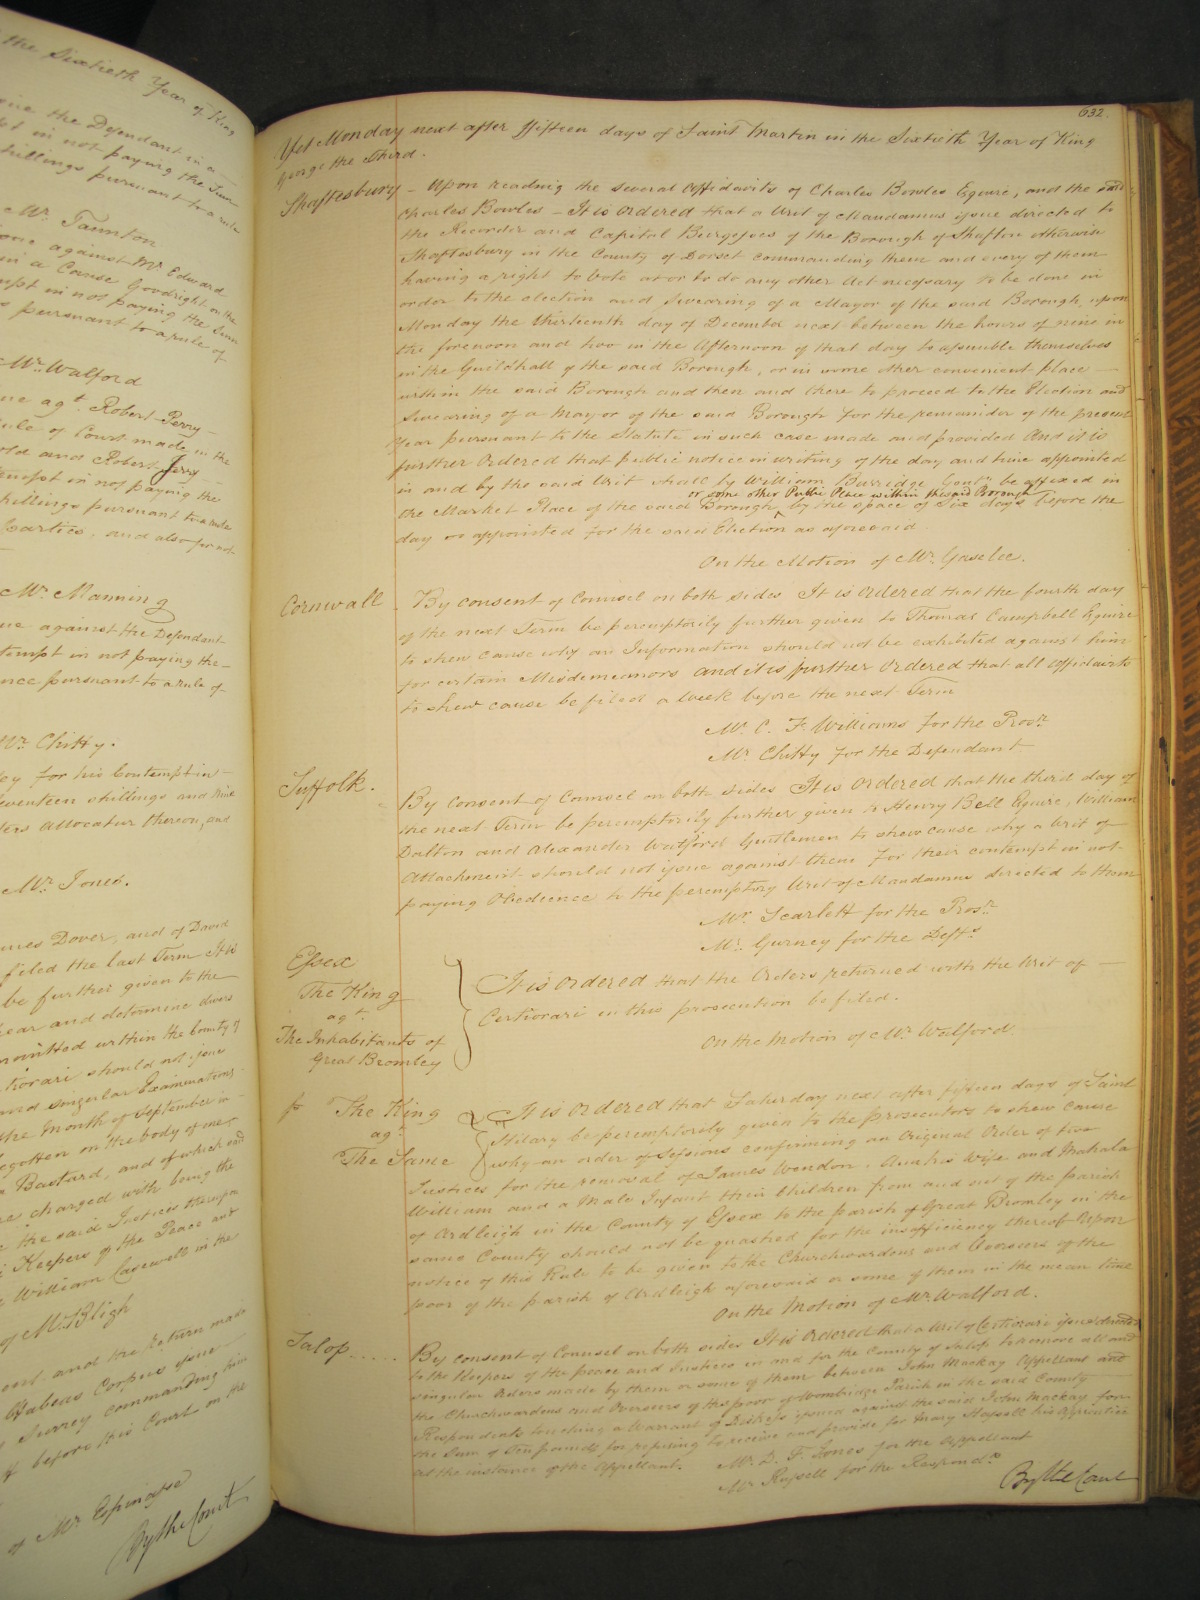 the Sixtieth Year of King
the Defendant in a
in not paying the Sum
shillings pursuant to a rule
Mr. Taunton
against Mr. Edward
in a Cause Goodright on the
in not paying the Sum
pursuant to a rule of
Mr. Walford
agt. Robert Perry
rule of Court made in the
and Robert Perry
in not paying the
shillings pursuant to a rule
parties, and also for not
Mr. Manning
against the Defendant
in not paying the
pursuant to a rule of
Mr. Chitty.
for his Contempt in
seventeen shillings and nine
Allocatur thereon, and
Mr. Jones.
Dover, and of David
filed the last Term It is
be further given to the
hear and determine divers
committed within the County of
should not issue
and singular Examinations
the Month of September in
begotten on the body of one
a Bastard, and of which said
charged with being the
the said Justices thereupon
Keepers of the Peace and
William Casewell in the
of Mr. Bligh
and the return made
Habeas Corpus issue
Surrey commanding him
before this Court on the
of Mr. Espinasse
By the Court
632.
Yet Monday next after ffifteen days of Saint Martin in the Sixtieth Year of King
George the Third.
Shaftesbury – Upon reading the several Affidavits of Charles Bowles Esquire, and the said
Charles Bowles – It is Ordered that a Writ of Mandamus issue directed to
the Recorder and Capital Burgesses of the Borough of Shaston otherwise
Shaftesbury in the County of Dorset commanding them and every of them
having a right to vote at or to do any other Act necessary to be done in
order to the election and Swearing of a Mayor of the said Borough, upon
Monday the thirteenth day of December next between the hours of nine in
the forenoon and two in the Afternoon of that day to assemble themselves
in the Guildhall of the said Borough, or in some other convenient place —
within the said Borough and then and there to proceed to the Election and
Swearing of a Mayor of the said Borough for the remainder of the present
Year pursuant to the Statute in such case made and provided And it is
further Ordered that public notice in writing of the day and time appointed
in and by the said Writ shall by William Burridge Gentn. be affixed in
or some other Public Place within the said Borough
the Market Place of the said Borough ^ by the space of Six days before the
day so appointed for the said Election as aforesaid
On the Motion of Mr. Gaselee.
Cornwall – By consent of Counsel on both sides It is Ordered that the fourth day
of the next Term be peremptorily further given to Thomas Campbell Esquire
to shew cause why an Information should not be exhibited against him
for certain Misdemeanors and it is further Ordered that all Affidavits
to shew cause be filed a Week before the next Term
Mr. C. F. Williams for the Prosr.
Mr. Chitty for the Defendant
Suffolk. – By consent of Counsel on both sides It is Ordered that the third day of
the next Term be peremptorily further given to Henry Bell Esquire, William
Dalton and Alexander Watford Gentlemen to shew cause why a Writ of
Attachment should not issue against them for their contempt in not
paying Obedience to the peremptory Writ of Mandamus directed to them
Mr. Scarlett for the Prosr.
Mr. Gurney for the Defts.
Essex
The King
agt.
The Inhabitants of
Great Bromley
It is Ordered that the Orders returned with the Writ of —
Certiorari in this prosecution be filed.
On the Motion of Mr. Walford
The King
agt
The Same
It is Ordered that Saturday next after fifteen days of Saint
Hilary be peremptorily given to the prosecutors to shew cause
why an order of Sessions confirming an Original Order of two
Justices for the removal of James Wendon, Ann his Wife and Mahala
William and a Male Infant their Children from and out of the parish
of Ardleigh in the County of Essex to the parish of Great Bromley in the
same County should not be quashed for the insufficiency thereof Upon
notice of this Rule to be given to the Churchwardens and Overseers of the
poor of the parish of Ardleigh aforesaid or some of them in the mean time
On the Motion of Mr. Walford.
Salop..... By consent of Counsel on both sides It is Ordered that a Writ of Certiorari issue directed
to the Keepers of the peace and Justices in and for the County of Salop to remove all and
singular Orders made by them or some of them between John Mackay Appellant and
the Churchwardens and Overseers of the poor of Wombridge Parish in the said County
Respondents touching a Warrant of Distress issued against the said John Mackay for
the Sum of Ten pounds for refusing to receive and provide for Mary Hassell his Apprentice
At the instance of the Appellant. Mr. D. F. Jones for the Appellant
Mr. Russell for the Respondts.
By the Court